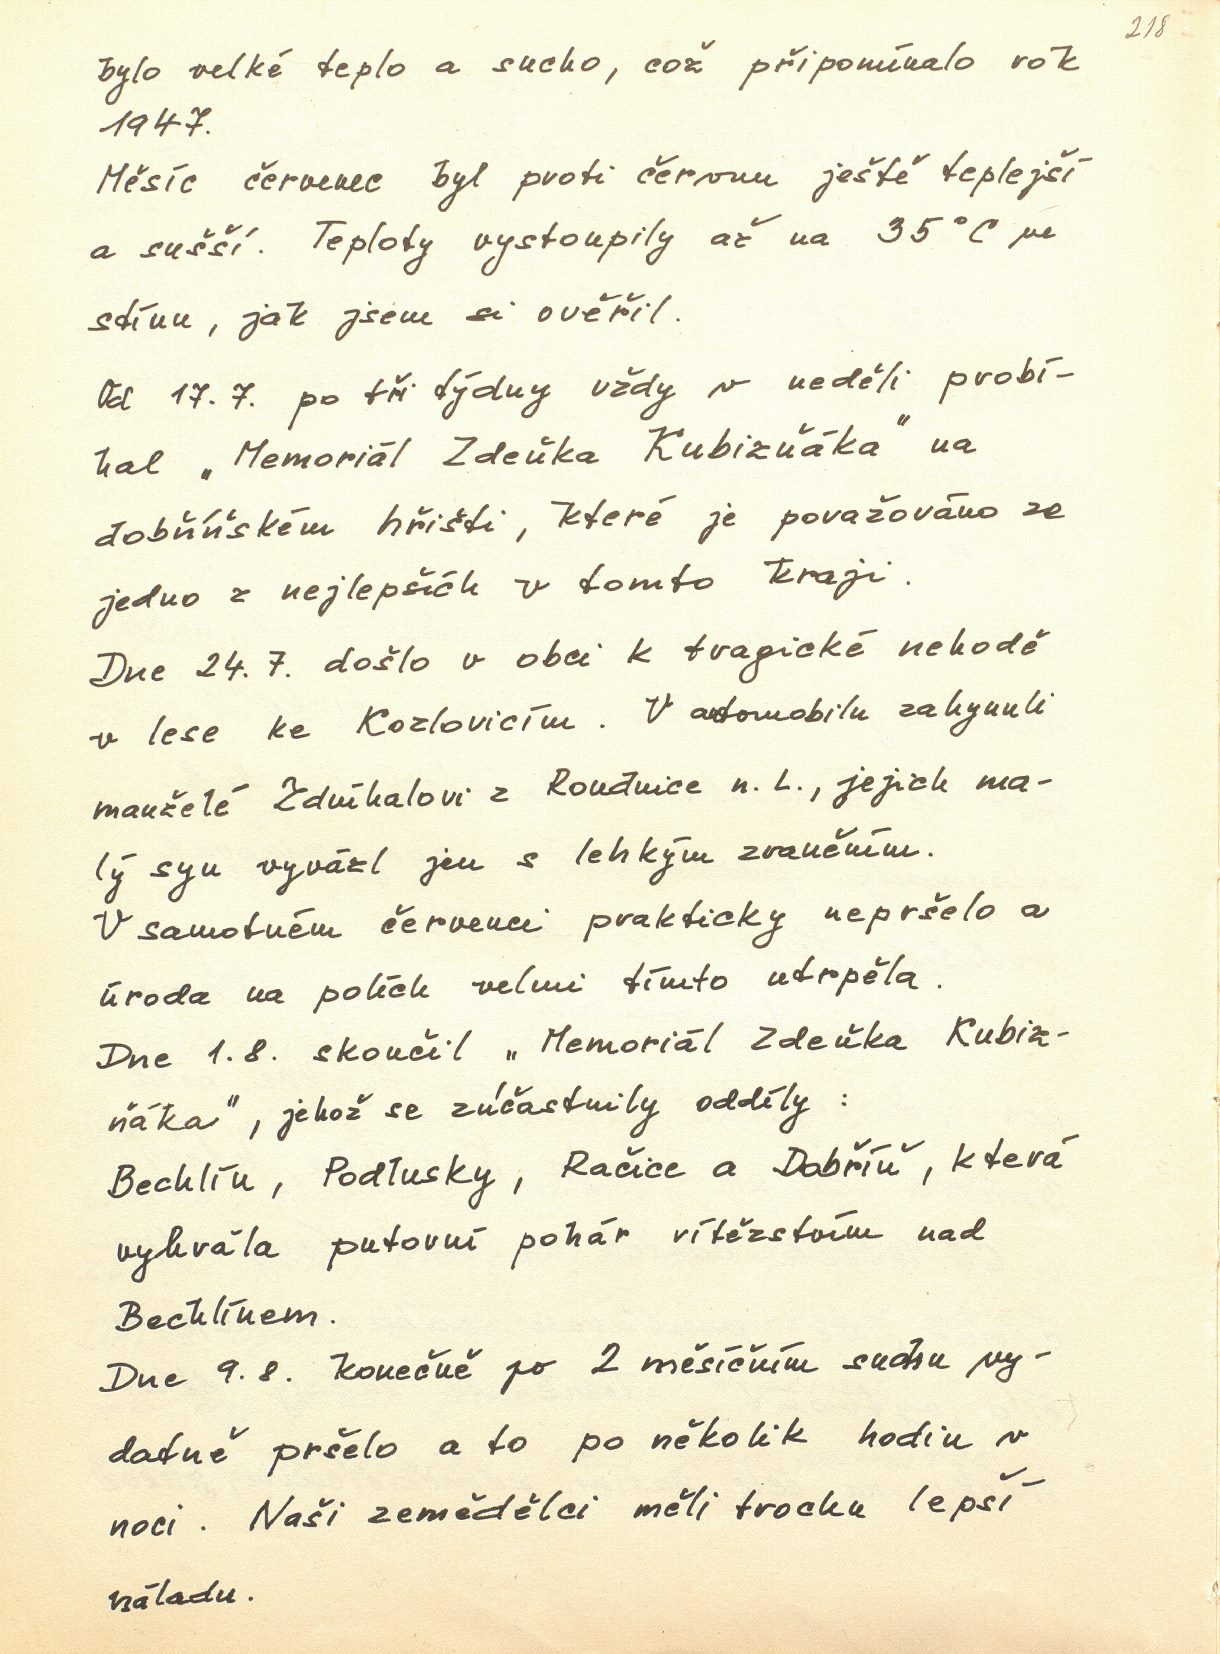 218
bylo velké teplo a sucho, což připomínalo rok
1947.
Měsíc červenec byl proti červnu ještě teplejší
a sušší. Teploty vystoupily až na 35°C ve
stínu, jak jsem si ověřil.
Od 17.7. po tři týdny vždy v neděli probí-
hal „Memoriál Zdeňka Kubizňáka" na
dobříňském hřišti, které je považováno za
jedno z nejlepších v tomto kraji.
Dne 24.7. došlo v obci k tragické nehodě
v lese ke Kozlovicím. V automobilu zahynuli
manželé Zdvíhalovi z Roudnice n. L., jejich ma-
lý syn vyvázl jen s lehkým zraněním.
V samotném červenci prakticky nepršelo a
úroda na polích velmi tímto utrpěla.
Dne 1.8. skončil „Memoriál Zdeňka Kubiz-
ňáka", jehož se zúčastnily oddíly:
Bechlín, Podlusky, Račice a Dobříň, která
vyhrála putovní pohár vítězstvím nad
Bechlínem.
Dne 9.8. konečně po 2 měsíčním suchu vy-
datně pršelo a to po několik hodin v
noci. Naši zemědělci měli trochu lepší
náladu.